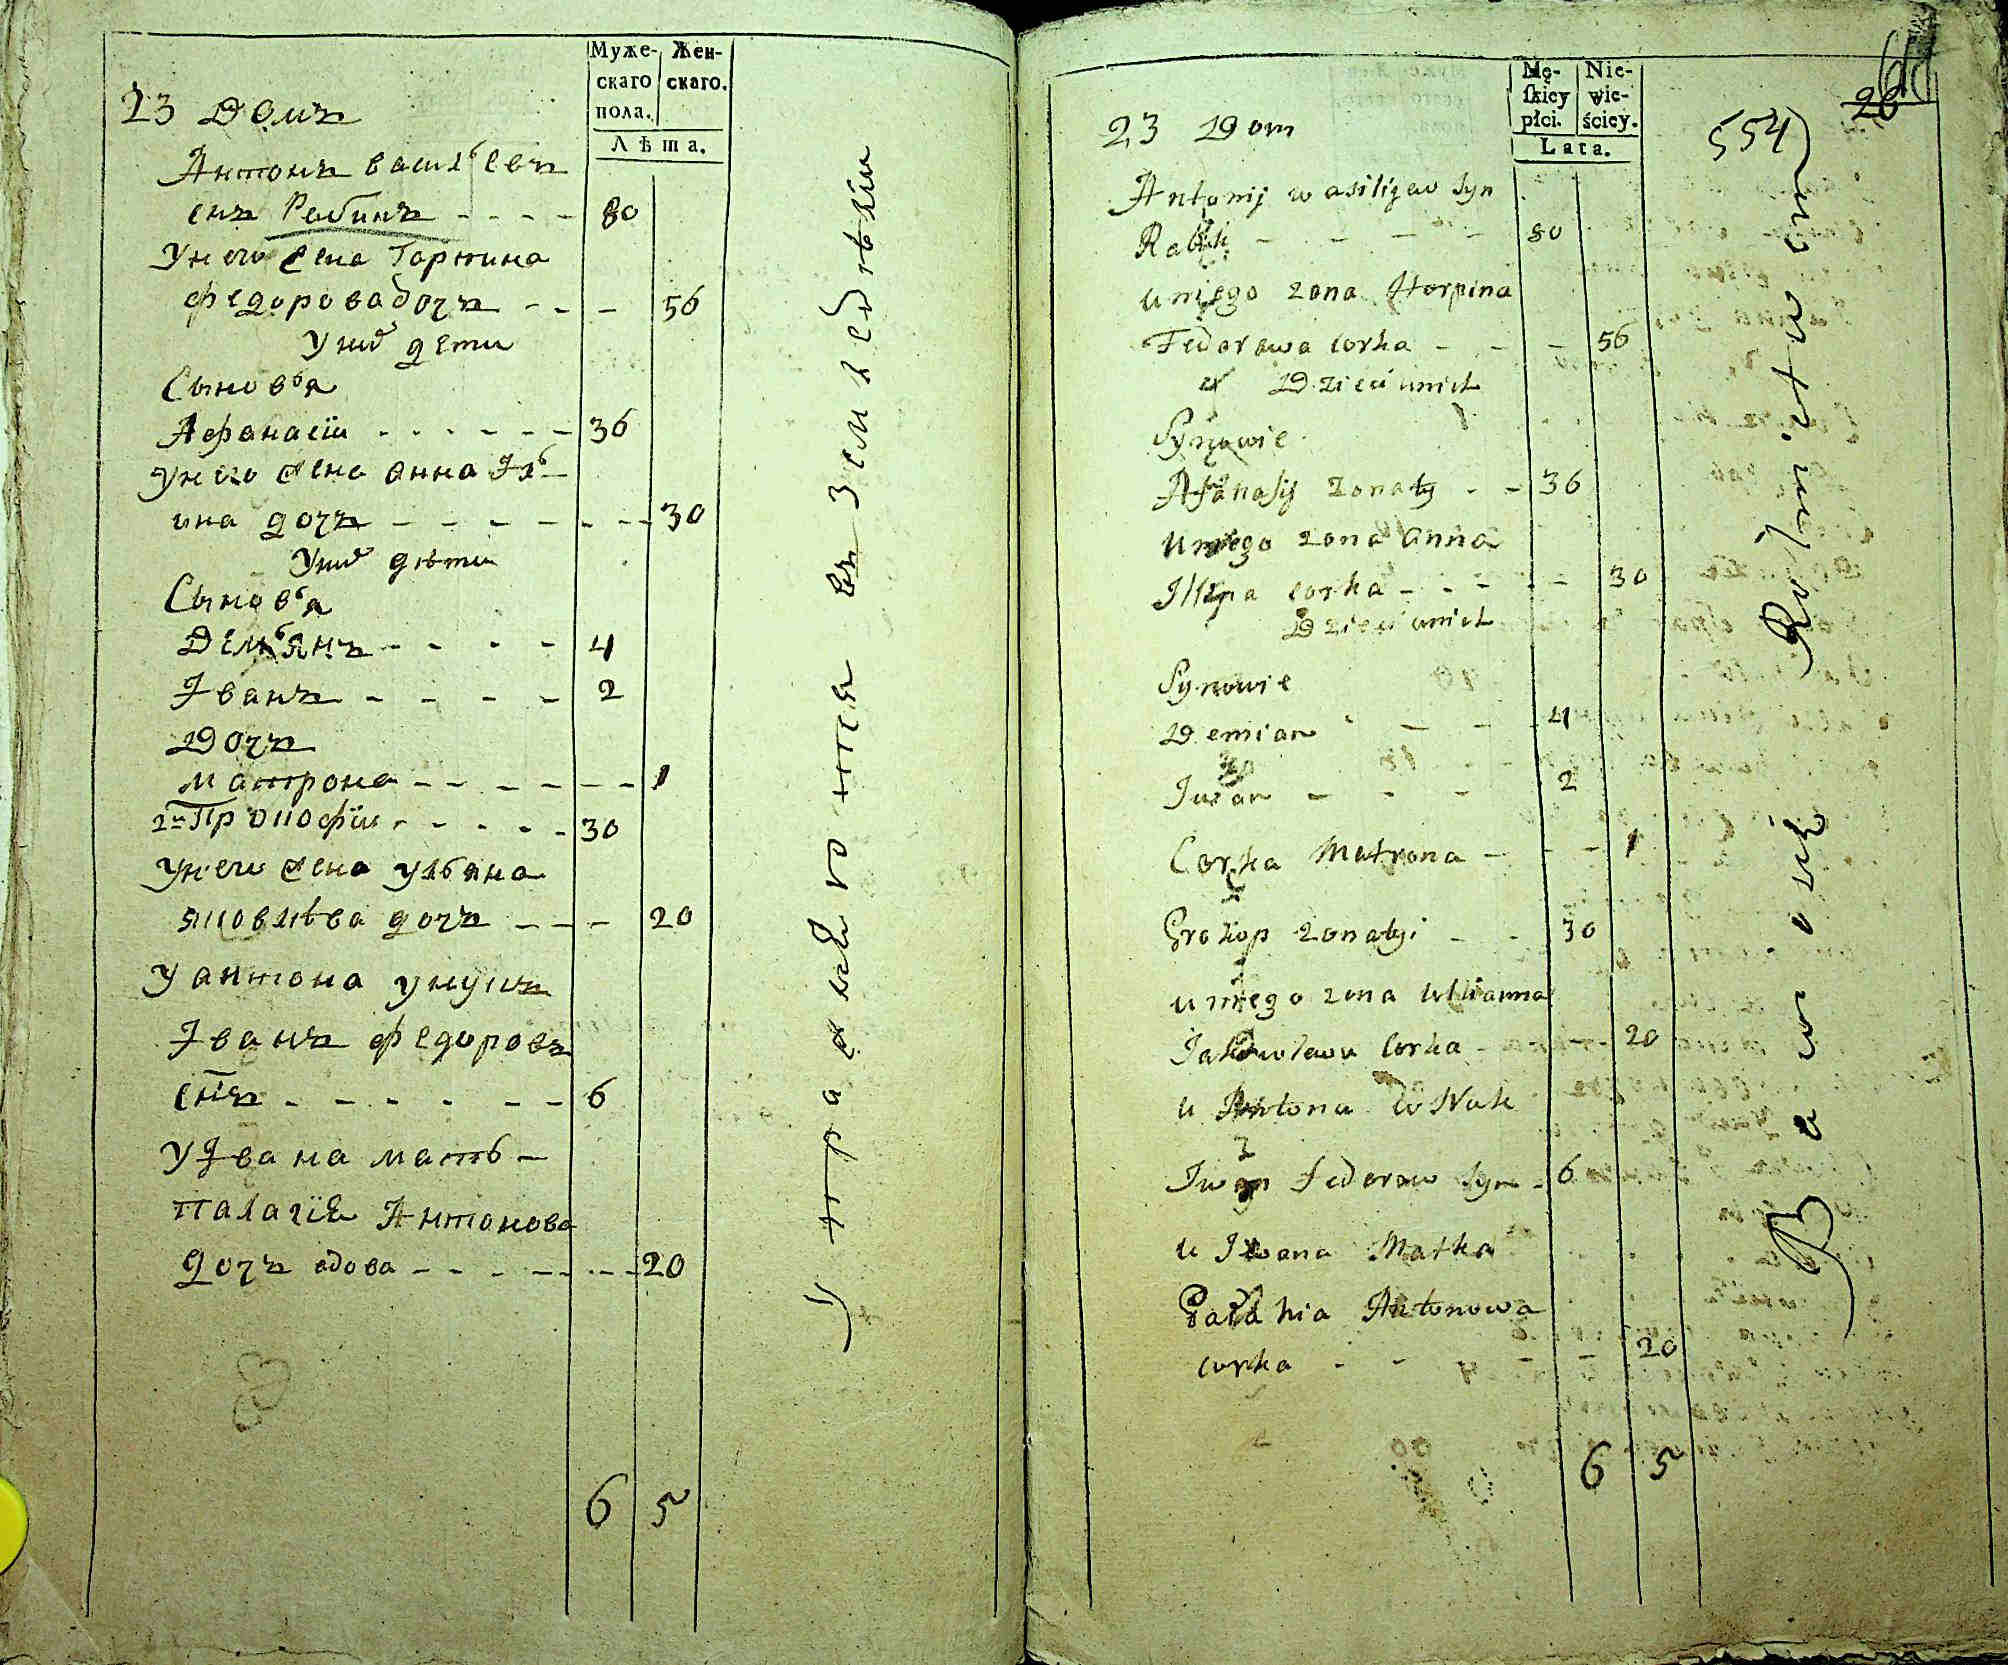 Муже-
скаго
пола.
Жен-
скаго.
Лѣта.
23 Домъ
Антонъ васильевъ
снъ Рабинъ - - - - 80
У него жена Гарпина
федорова дочъ - - - 56
У них дети
Сыновья
Афанасіи - - - - - - 36
У него жена анна Іл-
ина дочъ - - - - - - - - 30
У них дѣти
Сыновья
Демьянъ - - - - 4
Іванъ - - - - - 2
Дочъ
матрона - - - - - - - 1
2й Прокофіи - - - - - 30
У него жена ульяна
яковлѣва дочъ - - - 20
У антона унукъ
Іванъ федоровъ
снъ - - - - - - - 6
У Івана мать -
Палагія Антонова
дочъ вдова - - - - - - - 20
6 5
Упражняются въ земледѣліи
Mę-
ſkiey
płci.
Nie-
wie-
ściey.
Lata.
554
26
23 Dom
Antonij wasilijew syn
Rabin - - - - - 80
u niego zona Horpina
Fedorowa corka - - - 56
Dzieci u nich
Synowie
Afanasij zonaty - - 36
u niego zona anna
Ilina corka - - - - - 30
Dzieci u nich
Synowie
Demian - - - 4
Iwan - - - 2
Corka Matrona - - - 1
Prokop zonatyi - - 30
u niego zona Ullianna
Jakowlewa Corka - - - 20
u Antona Wnuk
Iwan Fedorow syn - 6
u Iwana Matka
Pałahia Antonowa
corka - - - - - 20
6 5
Bawią się Rolnictwem